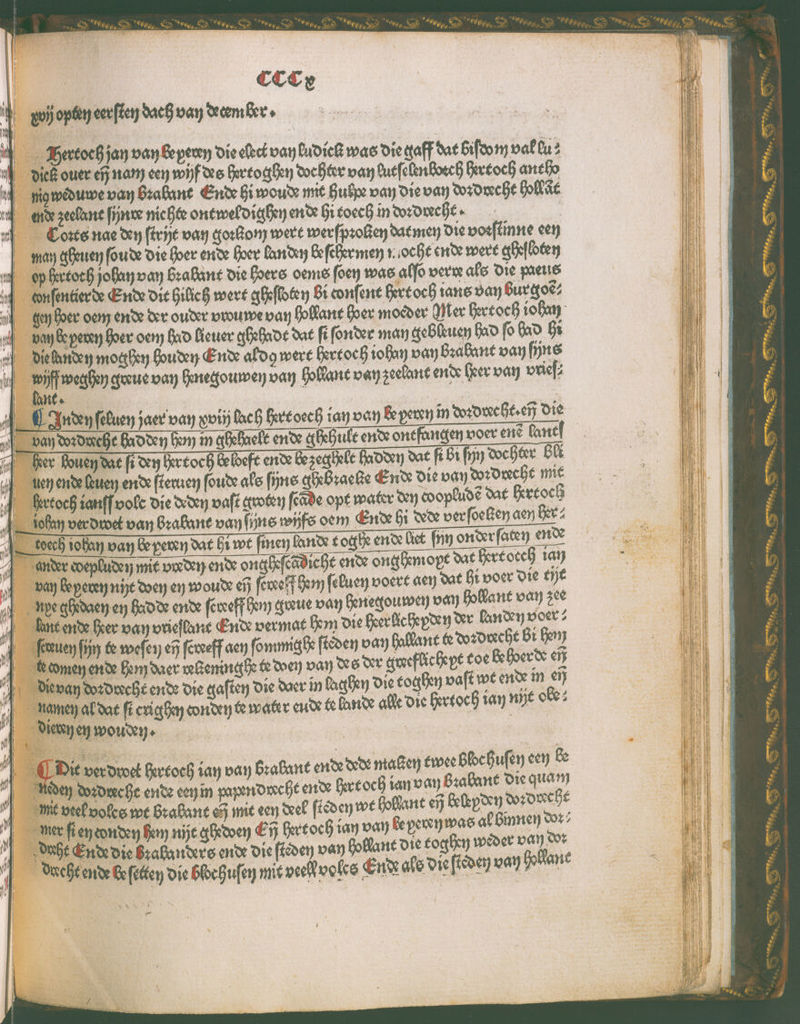 CCCx
xvij opten eersten dach van december.
Hertoch jan van beyeren die elect van ludick was die gaff dat bisdom val lu⸗
dick ouer eñ nam een wijf des hertoghen dochter van lutselenborch hertoch antho
nig weduwe van brabant Ende hi woude mit hulpe van die van dordrecht hollāt
ende zeelant sijnre nichte ontweldighen ende hi toech in dordrecht.
Corts nae den strijt van gorkom wert wersproken datmen die vorstinne een
man gheuen soude die hoer ende hoer landen beschermen mocht ende wert ghesloten
op hertoch johan van brabant die hoers oems soen was also verre als die paeus
consentierde Ende dit hilich wert ghesloten bi consent hertoch ians van burgoē⸗
gen hoer oem ende der ouder vrouwe van hollant hoer moeder Mer hertoch iohan
van beyeren hoer oem had lieuer ghehadt dat si sonder man gebleuen had so had hi
die landen moghen houden Ende aldꝰ wert hertoch iohan van brabant van sijns
wijff weghen greue van henegouwen van hollant van zeelant ende heer van vries⸗
lant.
¶ Inden seluen jaer van xvij lach hertoech ian van beyeren in dordrecht.eñ die
van dordrecht hadden hem in ghehaelt ende ghehult ende ontfangen voer enē lants
heer bouen dat si den hertoch beloeft ende bezeghelt hadden dat si bi sijn dochter bli
uen ende leuen ende steruen soude als sijns ghebraeke Ende die van dordrecht mit
hertoch ianss volc die deden vast groten scade opt water den coopludē dat hertoch
iohan verdroet van brabant van sijns wijfs oem Ende hi dede versoeken aen her⸗
toech iohan van beyeren dat hi wt sinen lande toghe ende liet sijn ondersaten ende
ander coepluden mit vreden ende onghescadicht ende onghemoyt dat hertoech ian
van beyeren nijt doen en woude eñ screeff hem seluen voert aen dat hi voer die tijt
nye ghedaen en hadde ende screeff hem greue van henegouwen van hollant van zee
lant ende heer van vrieslant Ende vermat hem die heerlicheyden der landen voer⸗
screuen sijn te wesen eñ screeff aen sommighe steden van hallant te dordrecht bi hem
te comen ende hem daer rekeninghe te doen van des der greeflicheyt toe behoerde eñ
die van dordrecht ende die gasten die daer in laghen die toghen vast wt ende in eñ
namen al dat si crighen conden te water eude te lande alle die hertoch ian nijt obe⸗
dieren en wouden.
¶ Dit verdroet hertoch ian van brabant ende dede maken twee blochusen een be
neden dordrecht ende een in papendrecht ende hertoch ian van brabant die quam
mit veel volcs wt brabant eñ mit een deel steden wt hollant eñ beleyden dordrecht
mer si en conden hem nijt ghedoen Eñ hertoch ian van beyeren was al binnen dor⸗
drecht Ende die brabanders ende die steden van hollant die toghen weder van dor
drecht ende besetten die blochusen mit veell volcs Ende als die steden van hollant